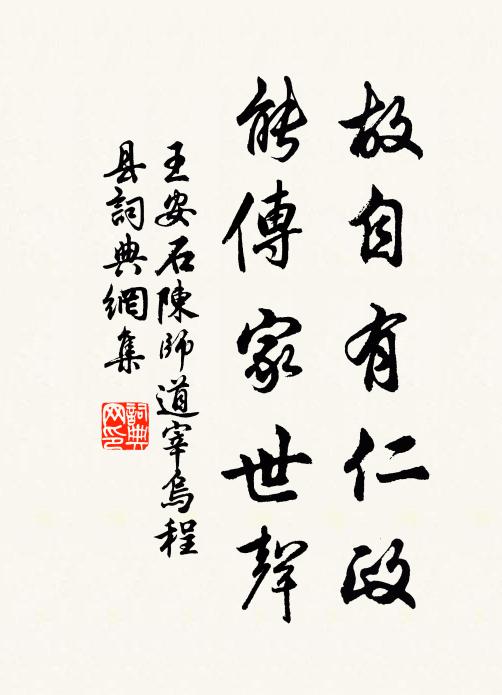 故自有仁政
能傳家世聲
王安石陳師道宰烏程
县詞典網集
詞典
网印